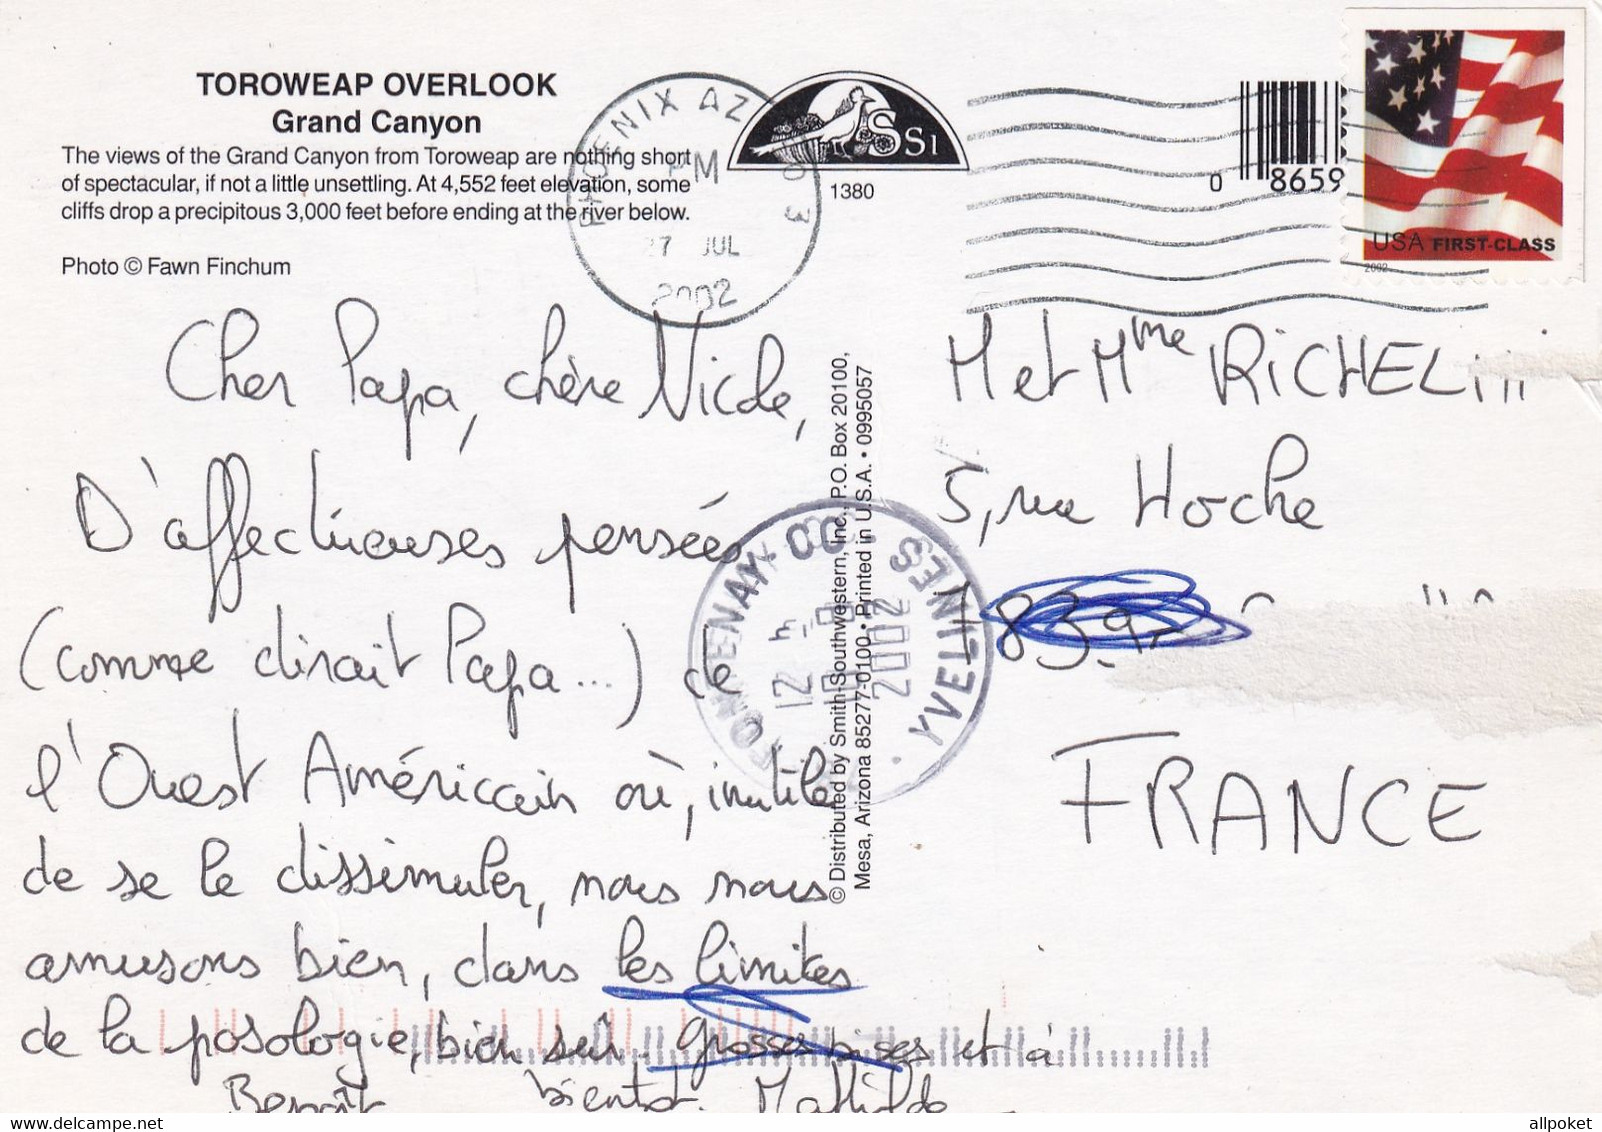 TOROWEAP OVERLOOK
Grand Canyon
The views of the Grand Canyon from Toroweap are nothing short
of spectacular, if not a little unsettling. At 4,552 feet elevation, some
cliffs drop a precipitous 3,000 feet before ending at the river below.
Photo © Fawn Finchum
PHOENIX AZ
PM
27 JUL
2002
SS1
1380
0 8659
USA FIRST-CLASS
2002
Cher Papa, chère Nicole,
D'affectueuses pensées
(comme dirait Papa...) de
l'Ouest Américain où, inutile
de se le dissimuler, nous nous
amusons bien, dans les limites
de la posologie, bien sûr. Grosses bises et à
bientôt. Mathilde
Benoît
© Distributed by Smith-Southwestern, Inc., P.O. Box 20100,
Mesa, Arizona 85277-0100 • Printed in U.S.A. • 0995057
YVELINES
12 H
2002
M et Mme RICHEL
5, rue Hoche
FRANCE
allpoket